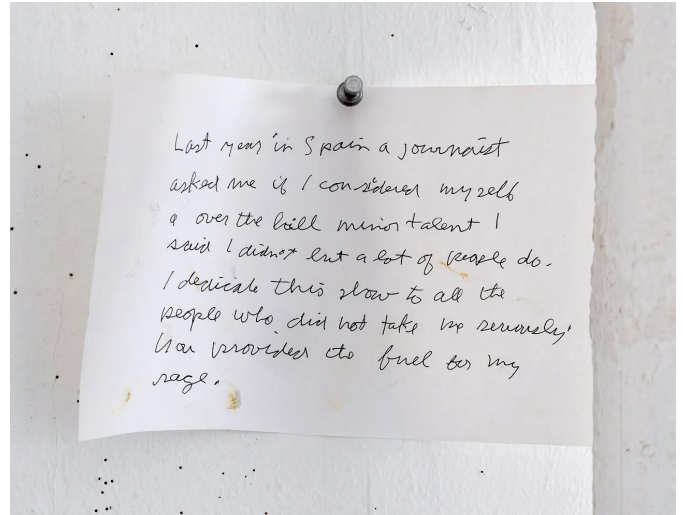 Last year in Spain a journalist
asked me if I considered myself
a over the hill minor talent I
said I didnot but a lot of people do.
I dedicate this show to all the
people who did not take me seriously.
You provided the fuel for my
rage.